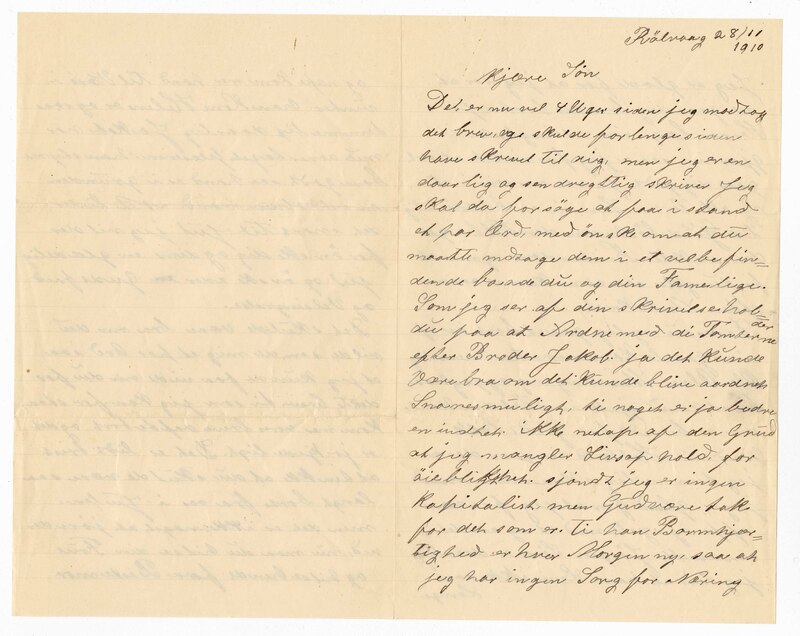 Rölvaag 28/11
1910
Kjære Søn
Det er nu vel 4 Uger siden jeg modtog
det brev, og skulde for lenge siden
have skrevet til dig, men jeg er en
daarlig og sendregttig skriver Jeg
skal da forsöge at faa i stand
et par Ord, med önske om at du
maatte mdtage dem i et velbefin-
dende baade du og din Famelige.
Som jeg ser af din skrivelse hol-
der
du paa at Ardne med di Tomterne
efter Broder Jakob. ja det Kunde
Være bra om det Kunde blive aardnet
Snarest muligt, ti noget er ja bedre
en indtet. ikke netop af den Grund
at jeg mangler Livsop hold, for
öieblikket. sjöndt jeg er ingen
Kapitalist, men Gud være tak
for det som er. ti han Barmhjær-
tighed er hver Morgen ny. saa at
jeg har ingen Sorg for Næring